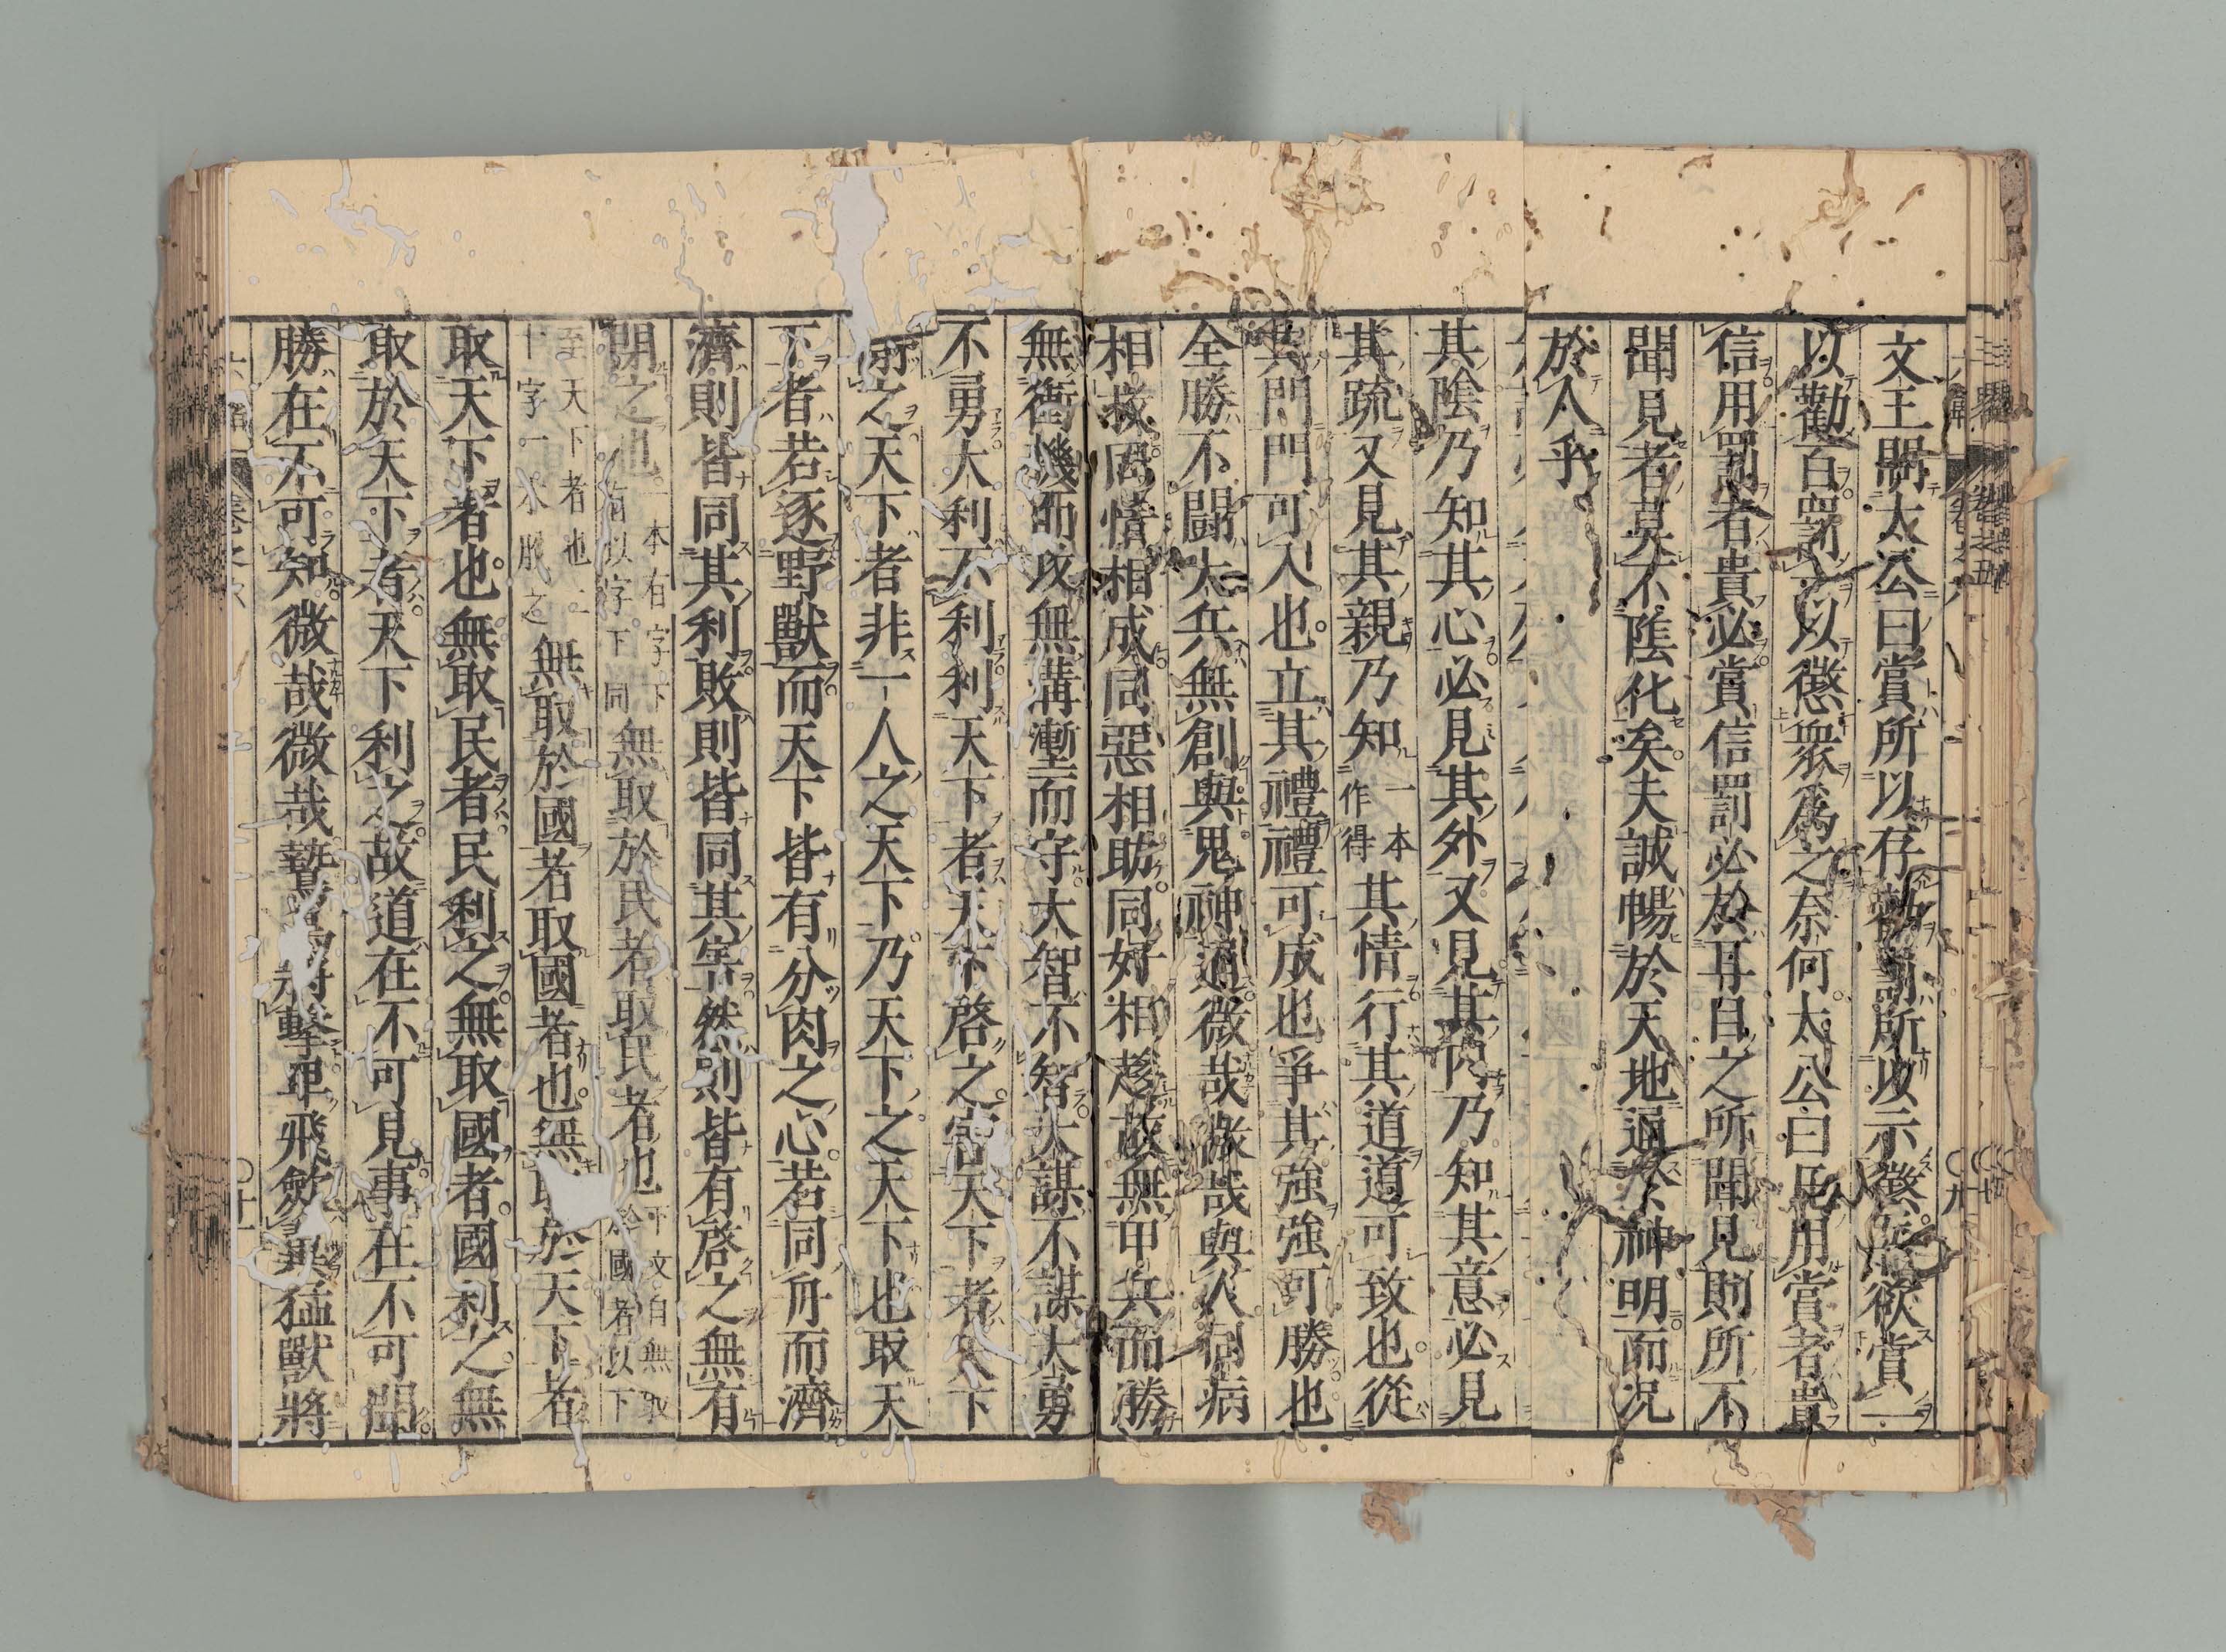 文王問太公曰賞所以存勸罰所以示懲欲賞一
以勸百罰一以懲衆爲之奈何太公曰凡用賞者貴
信用罰者貴必賞信罰必於耳目之所聞見則所不
聞見者莫不陰化矣夫誠暢於天地通於神明而况
於人乎
其陰乃知其心必見其外又見其内乃知其意必見
其疏又見其親乃知一本作得其情行其道道可致也從
其門門可入也立其禮禮可成也爭其強強可勝也
全勝不闘大兵無創與鬼神通微哉微哉與人同病
相救同情相成同惡相助同好相趍故無甲兵而勝
無衝機而攻無溝塹而守大智不智大謀不謀大勇
不勇大利不利利天下者天下啓之害天下者天下
閉之天下者非一人之天下乃天下之天下也取天
下者若逐野獸而天下皆有分肉之心若同舟而濟
濟則皆同其利敗則皆同其害然則皆有啓之無有
閉之也一本有字下有以字下同無取於民者取民者也下文自無取於國者以下
至天下者也二十字一本脱之無取於國者取國者也無取於天下者
取天下者也無取民者民利之無取國者國利之無
取於天下者天下利之故道在不可見事在不可聞
勝在不可知微哉微哉鷙鳥將擊卑飛斂翼猛獸將